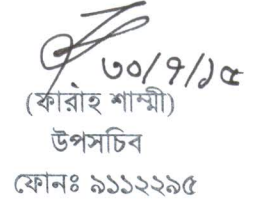 ৩০/৭/১৫
(ফারাহ শাম্মী)
উপসচিব
ফোনঃ ৯১১২২৯৫